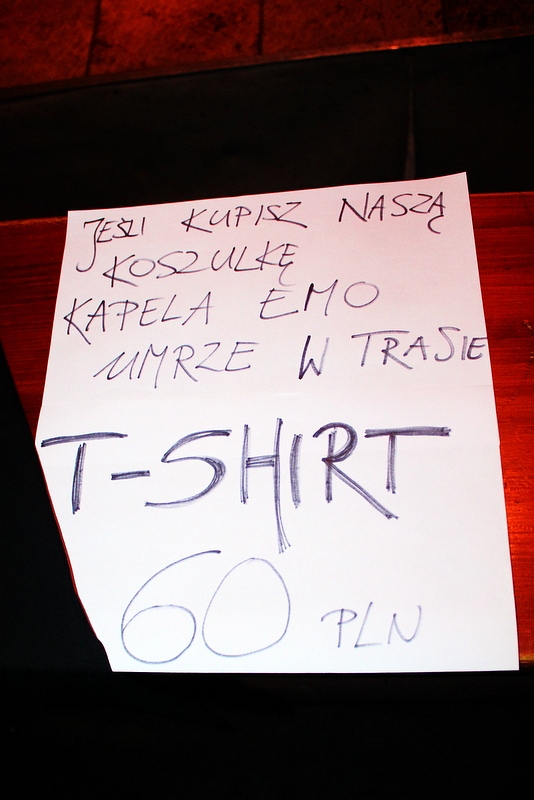 JEŚLI KUPISZ NASZĄ
KOSZULKĘ
KAPELA EMO
UMRZE W TRASIE
T-SHIRT
60 PLN